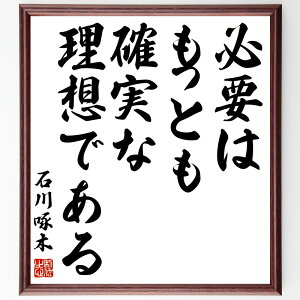 必要は
もっとも
確実な
理想である
石川啄木